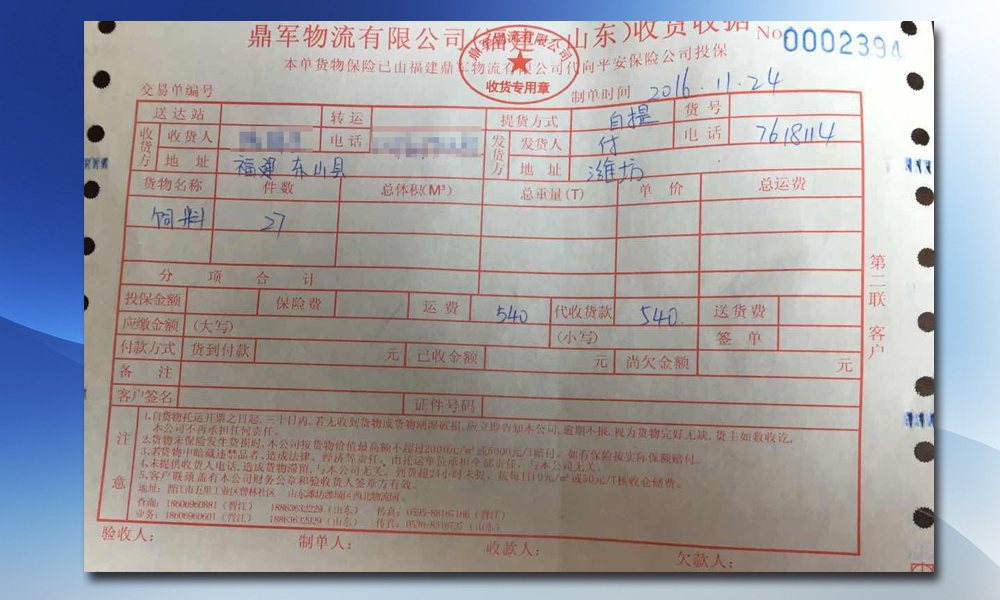 鼎军物流有限公司(福建 山东)收货收据 No 0002394
鼎军物流有限公司
收货专用章
本单货物保险已由福建鼎军物流有限公司代向平安保险公司投保
交易单编号 制单时间 2016.11.24
送达站 转运 提货方式 自提 货号
收货方 收货人 电话 发货方 发货人 付 电话 7618114
地址 福建 东山县 地址 潍坊
货物名称 件数 总体积(M³) 总重量(T) 单价 总运费
饲料 27
分项合计
投保金额 保险费 运费 540 代收货款 540. 送货费
应缴金额 (大写) (小写) 签单
付款方式 货到付款 元 已收金额 元 尚欠金额 元
备注
客户签名 证件号码
注意
1.自货物托运开票之日起,三十日内,若无收到货物或货物潮湿破损,应立即告知本公司,逾期不报,视为货物完好无缺,货主如数收讫,
本公司不再承担任何责任。
2.货物未保险发生货损时,本公司按货物价值最高额不超过2000元/m³或5000元/T赔付。如有保险按实际保额赔付。
3.若货物中暗藏违禁品者,造成法律、经济等责任,由托运单位承担全部责任,与本公司无关。
4.未提供收货人电话,造成货物滞留,与本公司无关。到货超24小时未提,按每1日10元/m³或50元/T核收仓储费。
5.客户联须盖有本公司财务公章和验收货人签章方有效。
地址:晋江市五里工业区曾林社区 山东潍坊潍城区西北物流园。
查询:18606960881(晋江) 18863632229(山东) 传真:0595-88167166(晋江)
业务:18606960601(晋江) 18863632929(山东) 传真:0536-8318737(山东)
第二联 客户
验收人: 制单人: 收款人: 欠款人: